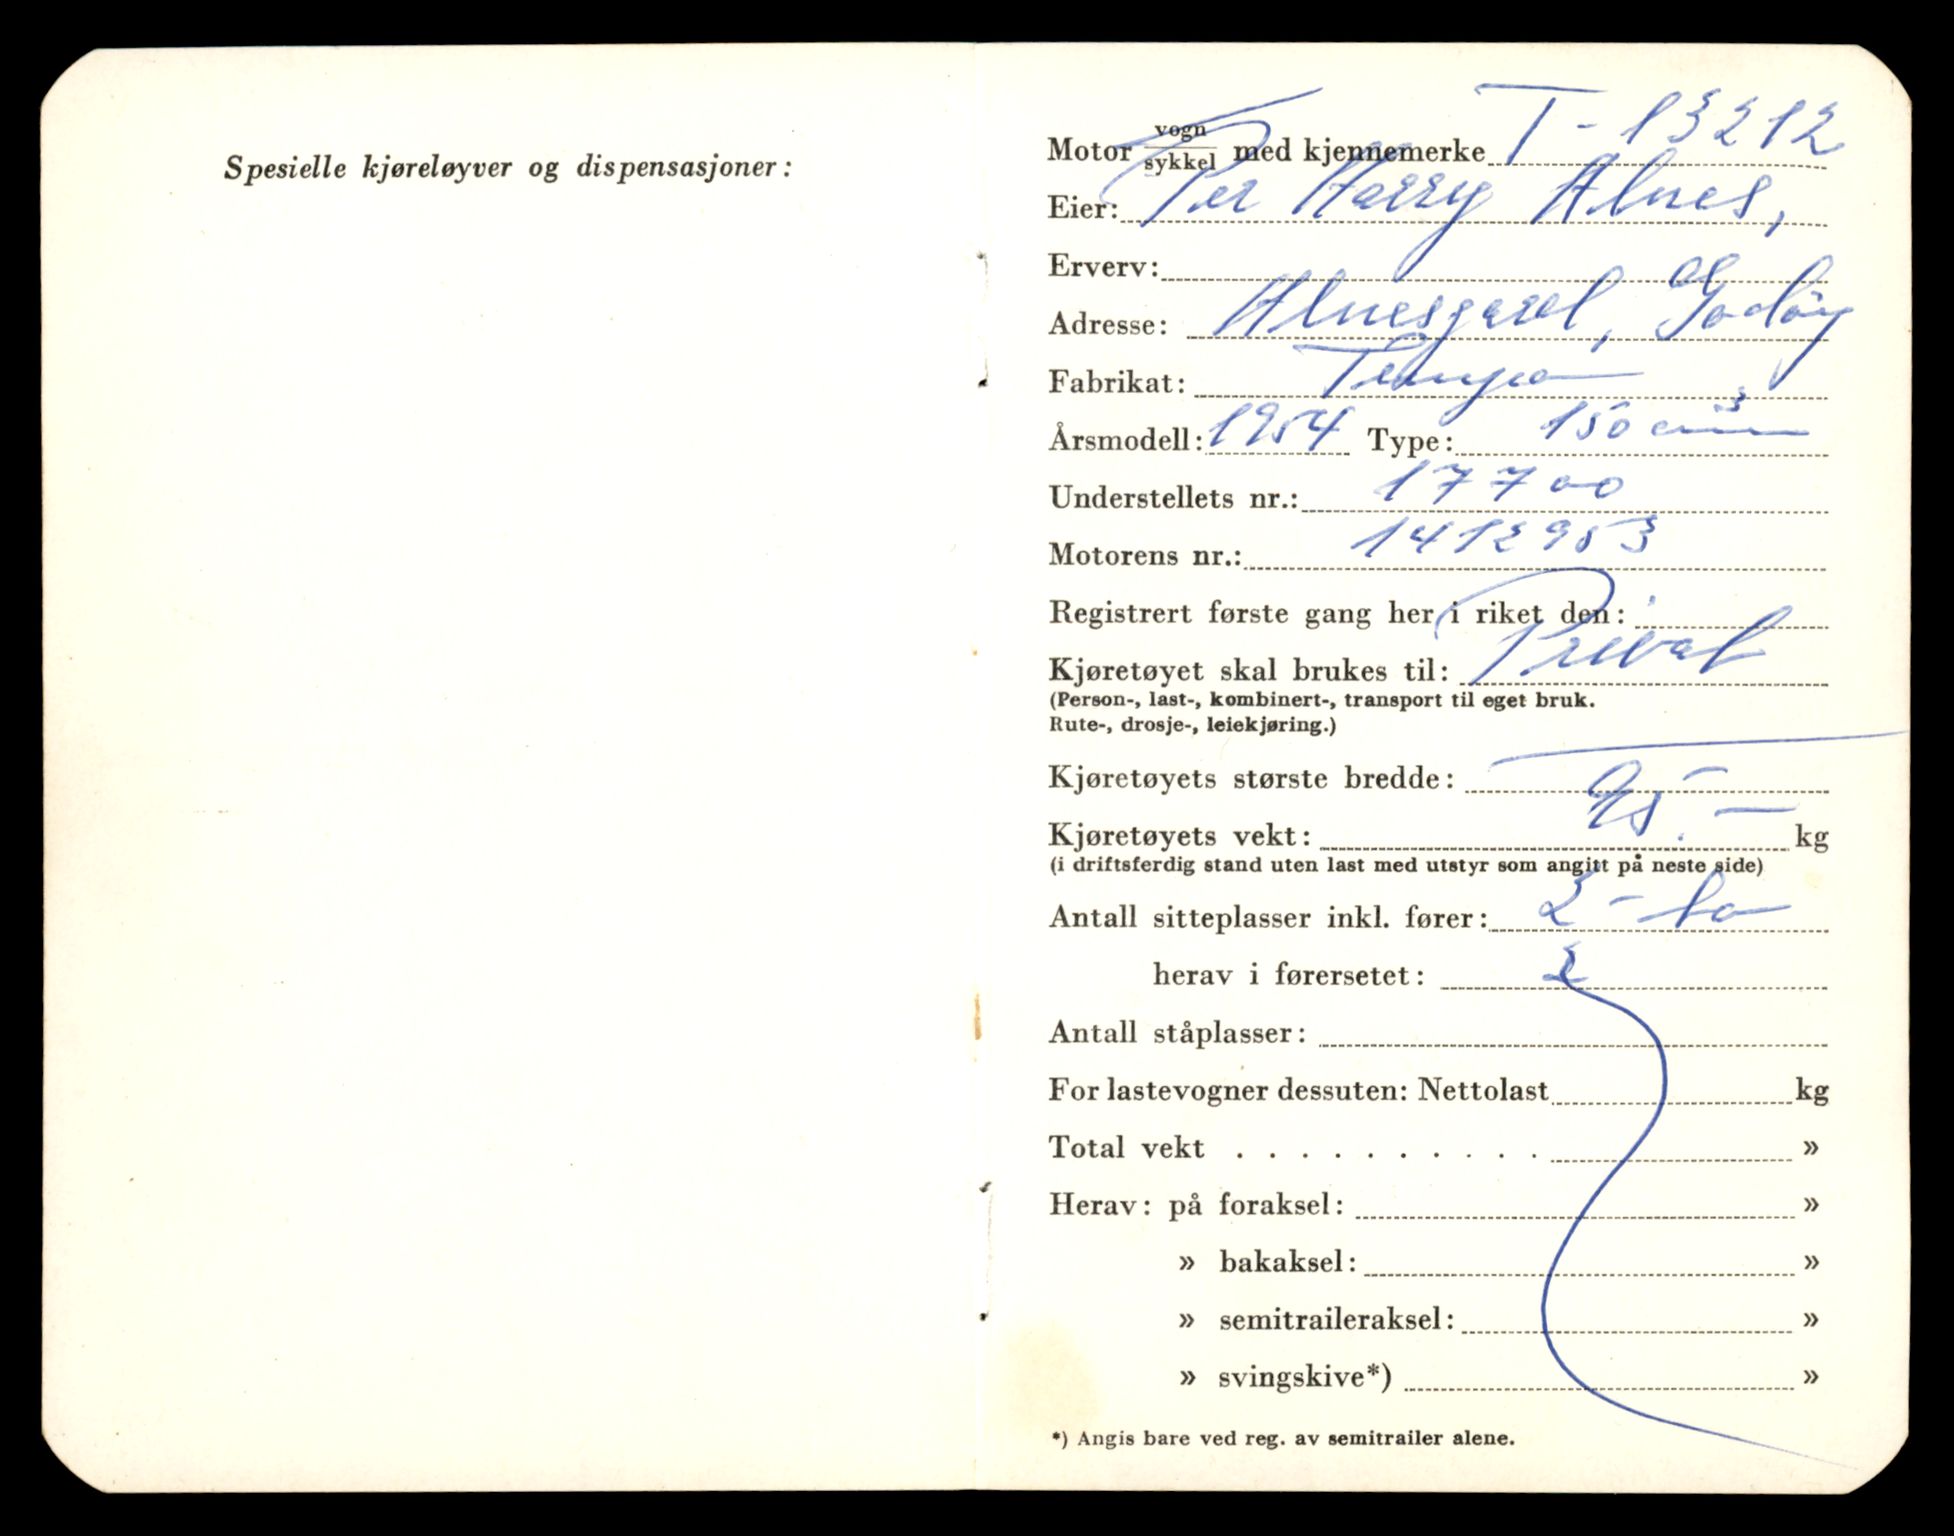 Spesielle kjøreløyver og dispensasjoner:
Motor vogn/sykkel med kjennemerke T-13212
Eier: Per Harry Alnes,
Erverv:
Adresse: Alnesgard, Godøy
Fabrikat: Tempo
Årsmodell: 1954 Type: 150 cm³
Understellets nr.: 17700
Motorens nr.: 1412953
Registrert første gang her i riket den:
Kjøretøyet skal brukes til: Privat
(Person-, last-, kombinert-, transport til eget bruk.
Rute-, drosje-, leiekjøring.)
Kjøretøyets største bredde:
Kjøretøyets vekt: 95.- kg
(i driftsferdig stand uten last med utstyr som angitt på neste side)
Antall sitteplasser inkl. fører: 2 - to
herav i førersetet: 2
Antall ståplasser:
For lastevogner dessuten: Nettolast kg
Total vekt . . . . . . . . . . »
Herav: på foraksel: »
» bakaksel: »
» semitraileraksel: »
» svingskive*) »
*) Angis bare ved reg. av semitrailer alene.